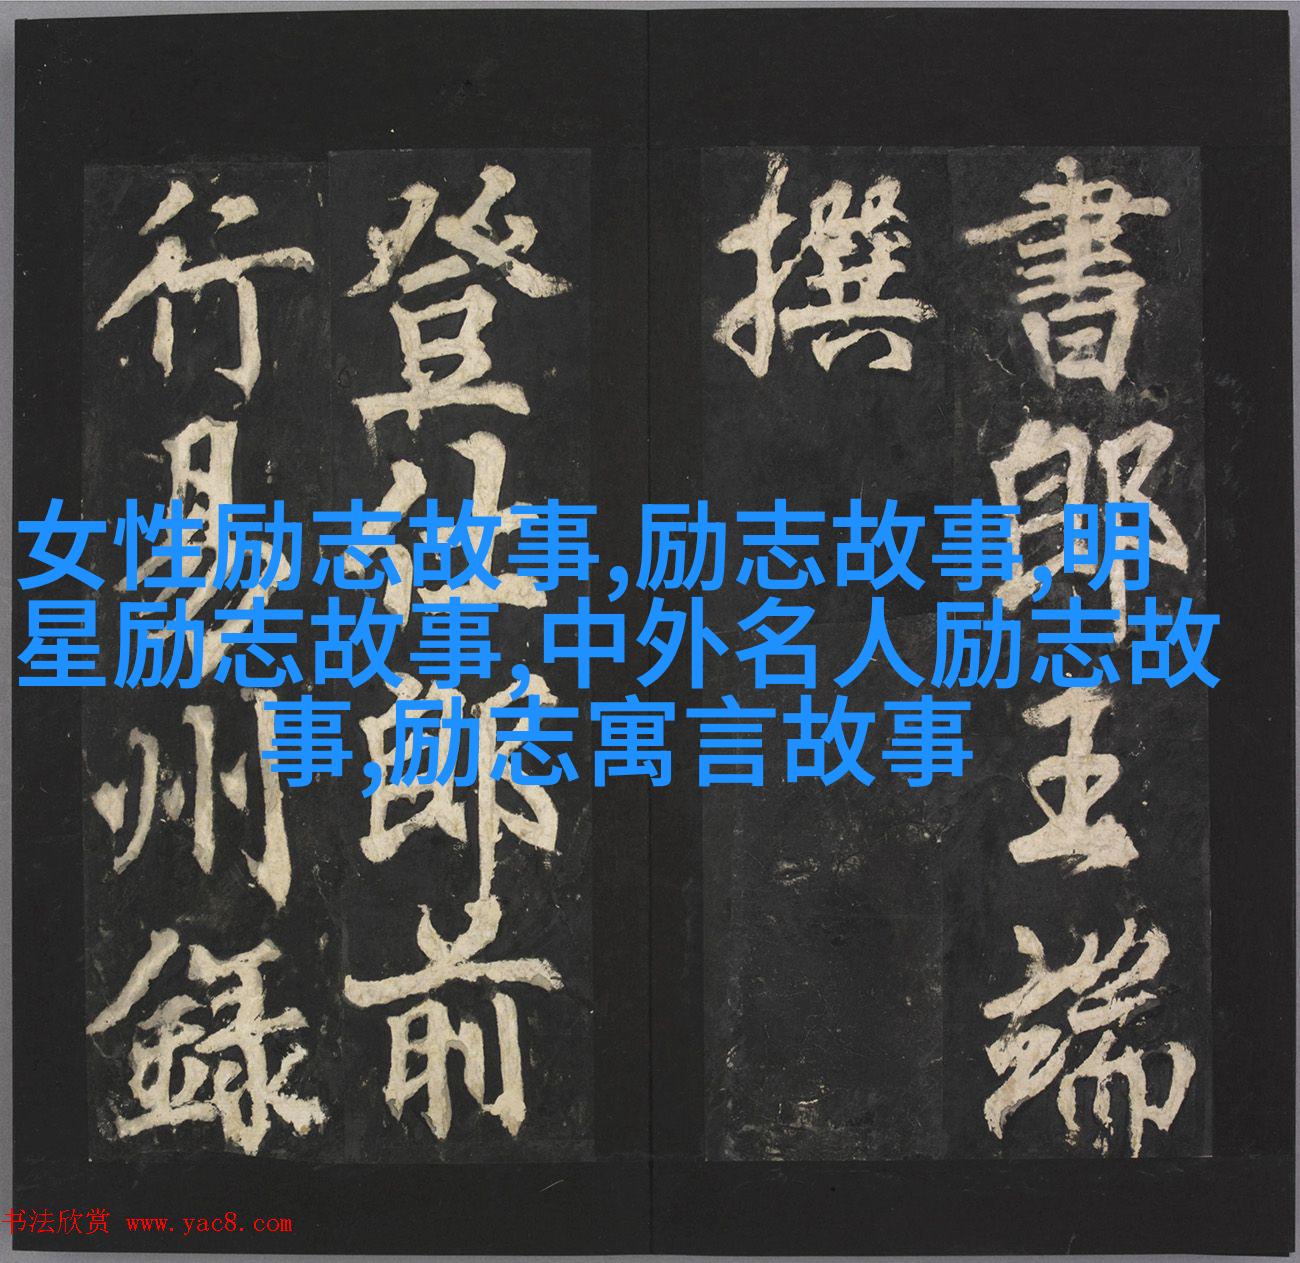 書郎王端
撰
登仕郎前
行易州錄
女性励志故事,励志故事,明
星励志故事,中外名人励志故
事,励志寓言故事
书法欣赏 www.yac8.com